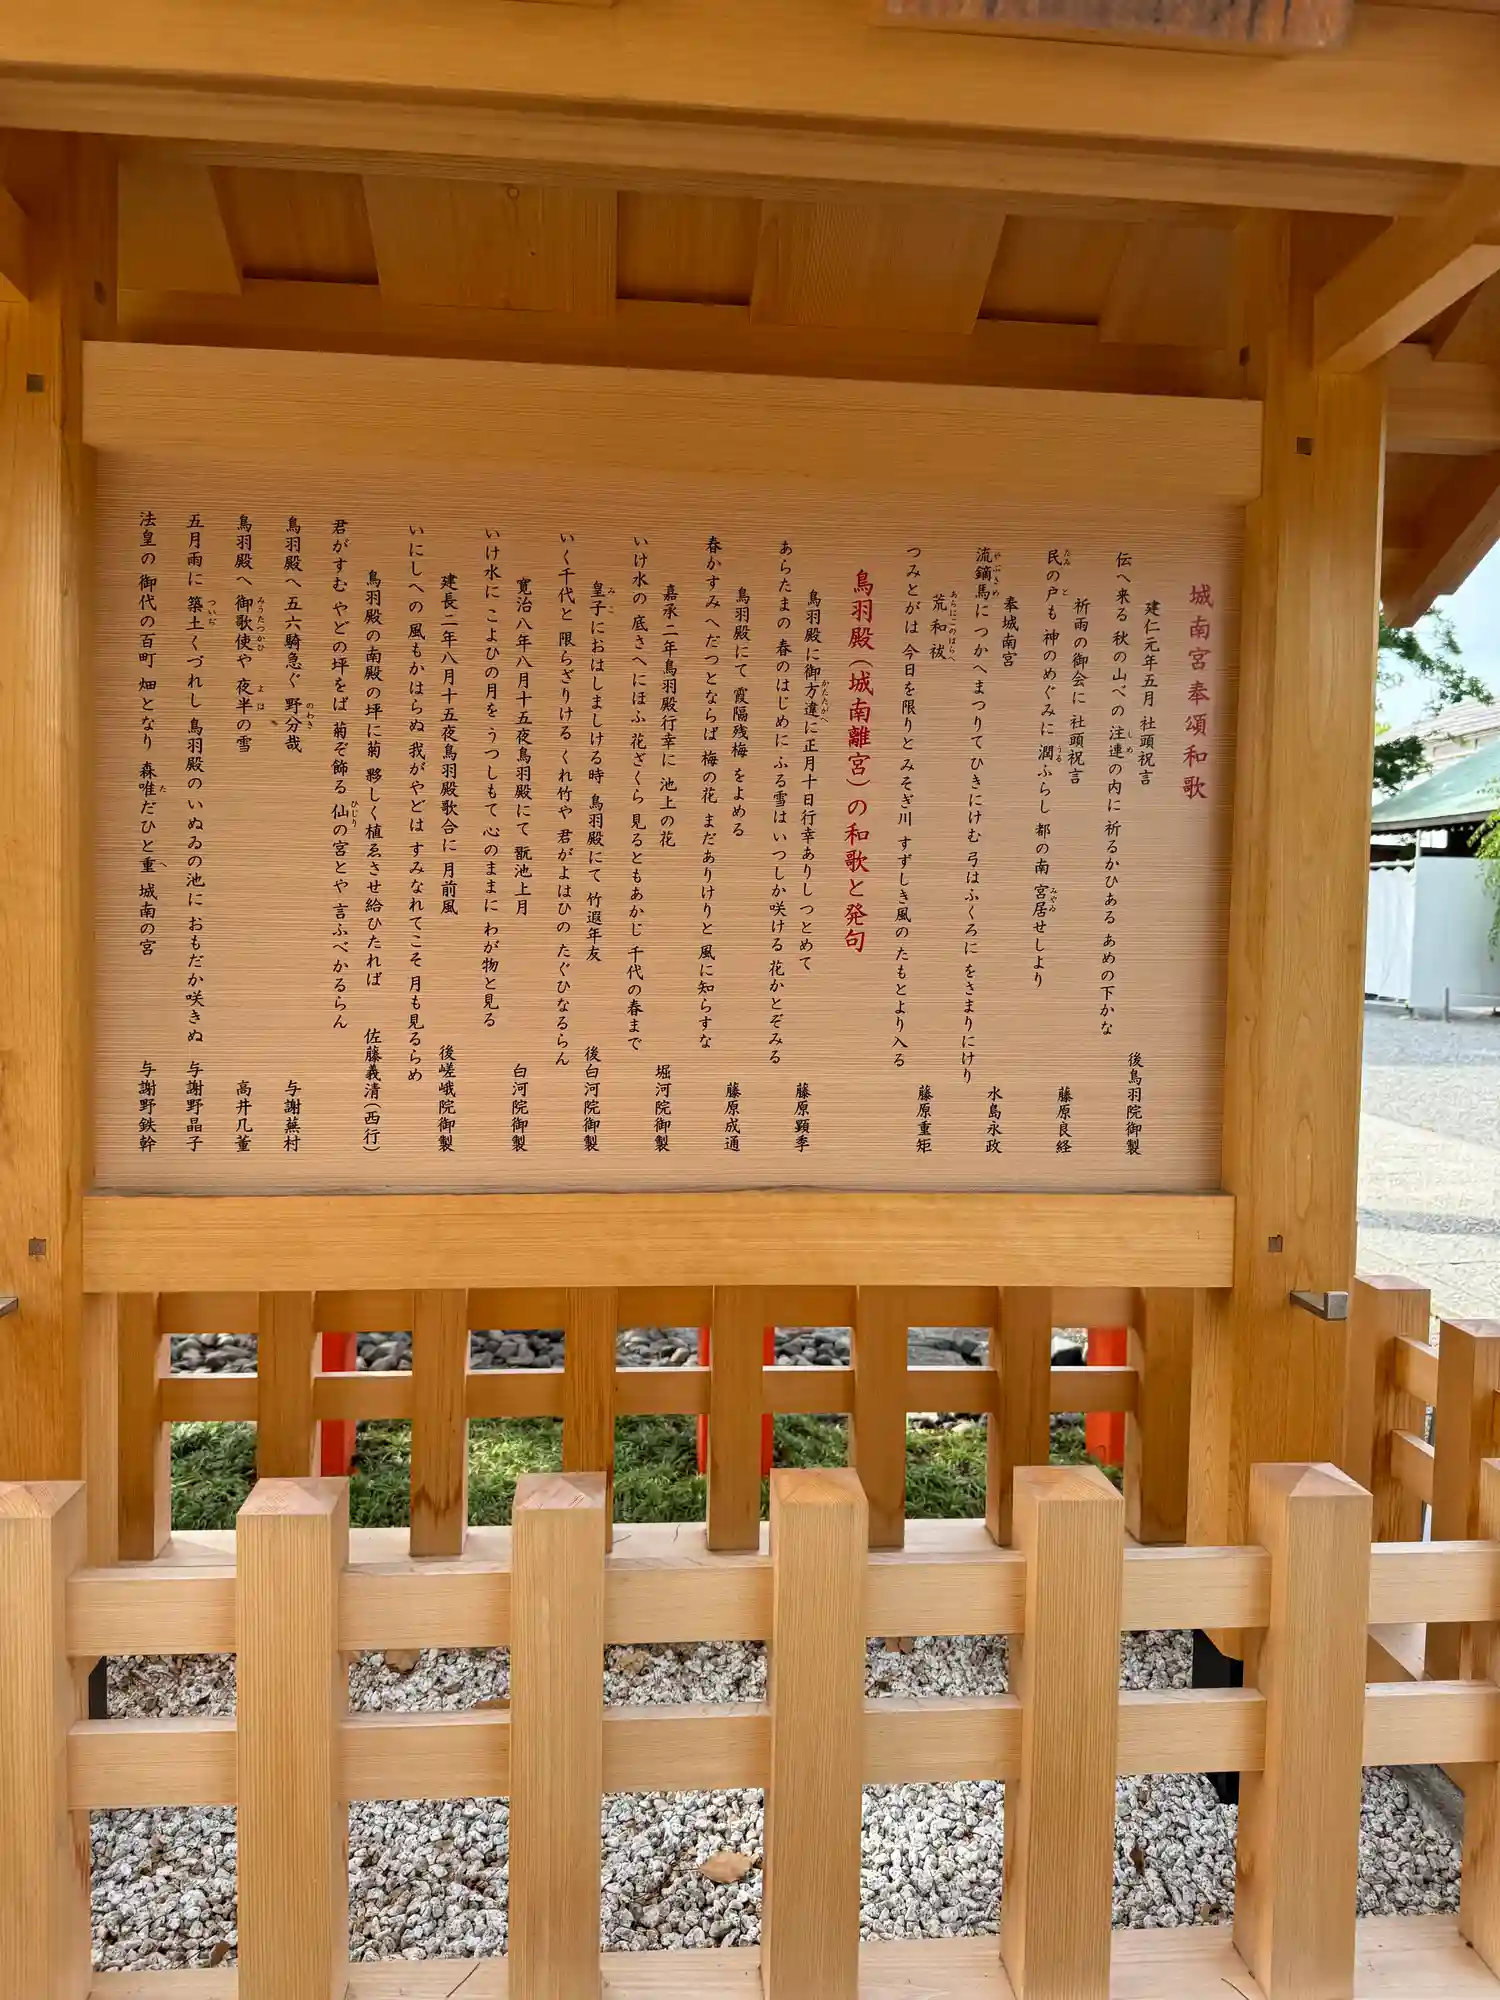 城南宮奉頌和歌
建仁元年五月 社頭祝言
伝へ来る 秋の山べの 注連の内に 祈るかひある あめの下かな 後鳥羽院御製
祈雨の御会に 社頭祝言
民の戸も 神のめぐみに 潤ふらし 都の南 宮居せしより 藤原良経
奉城南宮
流鏑馬に つかへまつりて ひきにけむ 弓はふくろに をさまりにけり 水島永政
荒和祓
つみとがは 今日を限りと みそぎ川 すずしき風の たもとより入る 藤原重矩
鳥羽殿(城南離宮)の和歌と発句
鳥羽殿に御方違に正月十日行幸ありしつとめて
あらたまの 春のはじめに ふる雪は いつしか咲ける 花かとぞみる 藤原顕季
鳥羽殿にて 霞隔残梅 をよめる
春かすみ へだつとならば 梅の花 まだありけりと 風に知らすな 藤原成通
嘉承二年鳥羽殿行幸に 池上の花
いけ水の 底さへにほふ 花ざくら 見るともあかじ 千代の春まで 堀河院御製
皇子におはしましける時 鳥羽殿にて 竹遐年友
いく千代と 限らざりける くれ竹や 君がよはひの たぐひなるらん 後白河院御製
寛治八年八月十五夜鳥羽殿にて 翫池上月
いけ水に こよひの月を うつしもて 心のままに わが物と見る 白河院御製
建長二年八月十五夜鳥羽殿歌合に 月前風
いにしへの 風もかはらぬ 我がやどは すみなれてこそ 月も見るらめ 後嵯峨院御製
鳥羽殿の南殿の坪に菊 夥しく植ゑさせ給ひたれば
君がすむ やどの坪をば 菊ぞ飾る 仙の宮とや 言ふべかるらん 佐藤義清(西行)
鳥羽殿へ 五六騎急ぐ 野分哉 与謝蕪村
鳥羽殿へ 御歌使や 夜半の雪 高井几董
五月雨に 築土くづれし 鳥羽殿の いぬゐの池に おもだか咲きぬ 与謝野晶子
法皇の 御代の百町 畑となり 森唯だひと重 城南の宮 与謝野鉄幹